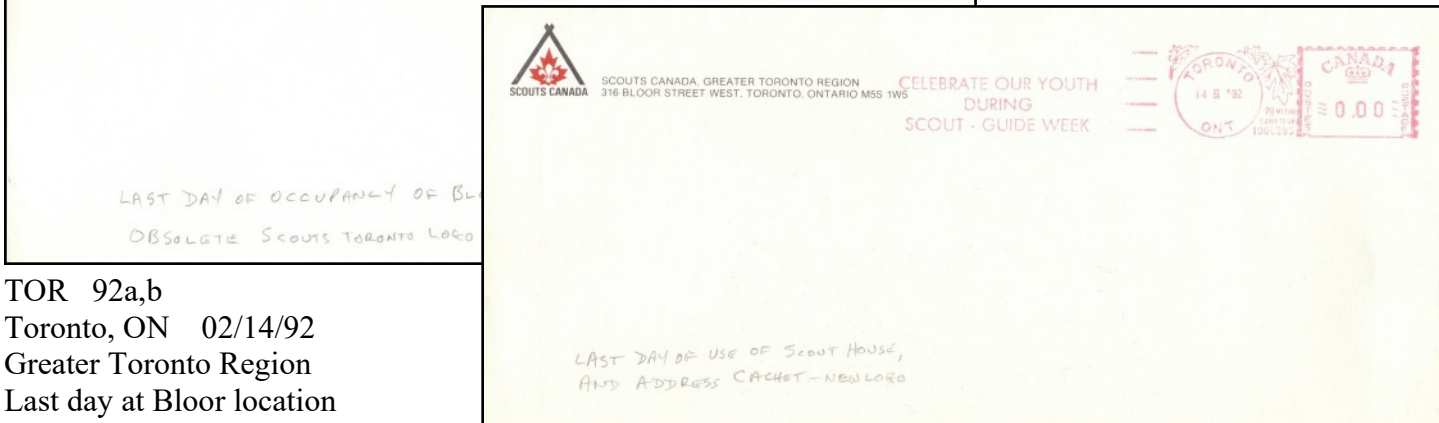 LAST DAY OF OCCUPANCY OF
OBSOLETE SCOUTS TORONTO LOGO
TOR 92a,b
Toronto, ON 02/14/92
Greater Toronto Region
Last day at Bloor location
SCOUTS CANADA
SCOUTS CANADA, GREATER TORONTO REGION
316 BLOOR STREET WEST, TORONTO, ONTARIO M5S 1W5
CELEBRATE OUR YOUTH
DURING
SCOUT - GUIDE WEEK
TORONTO
14 II '92
ONT
CANADA
0.00
LAST DAY OF USE OF SCOUT HOUSE,
AND ADDRESS CACHET - NEW LOGO